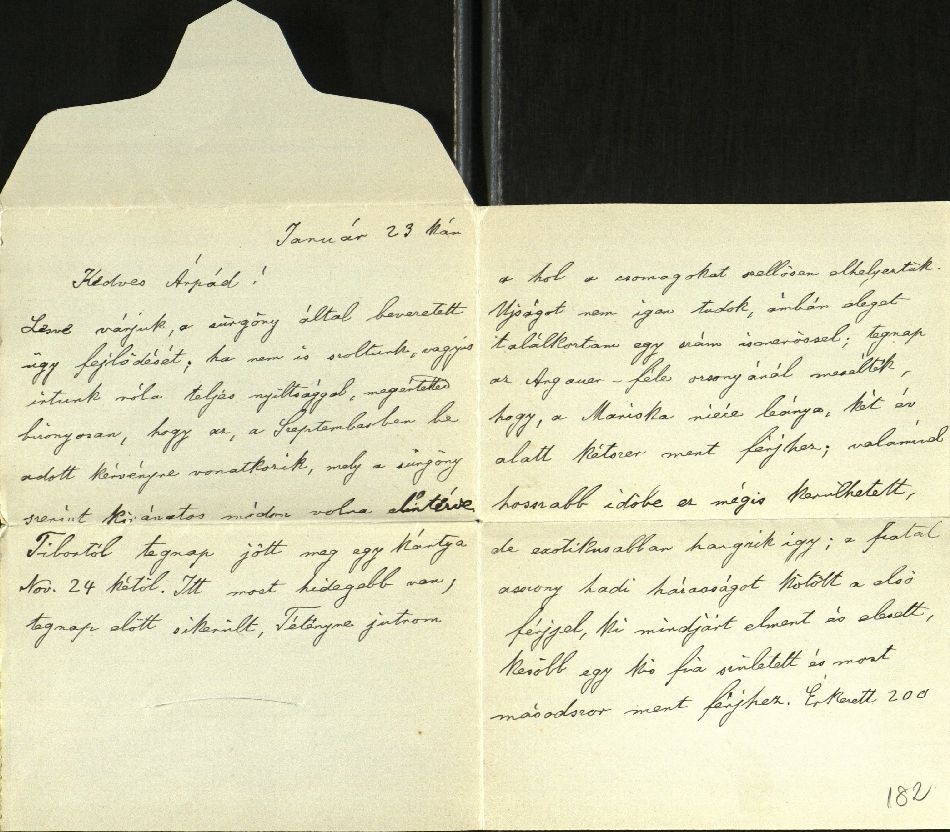 Január 23 kán
Kedves Árpád!
Lesve várjuk, a sürgöny által bevezetett
ügy fejlődését; ha nem is szoltunk, vagyis
irtunk róla teljes nyiltsággal, megértetted
bizonyosan, hogy az, a Szeptemberben be
adott kérvényre vonatkozik, mely a sürgöny
szerint kivánatos módon volna elintézve
Tibortól tegnap jött meg egy kártya
Nov. 24 kétől. Itt most hidegebb van;
tegnap előtt sikerült, Tétényre jutnom
a hol a csomagokat szellősen elhelyeztük.
Ujságot nem igen tudok, ámbár eleget
találkoztam egy szám ismerőssel; tegnap
az Angauer-féle orsonyánál meséltek,
hogy, a Mariska nièce leánya, két év
alatt kétszer ment férjhez; valamivel
hosszabb időbe ez mégis kerülhetett,
de exotikusabban hangzik igy; a fiatal
asszony hadi házasságot kötött a első
férjjel, ki mindjárt elment és elesett,
később egy kis fia született és most
másodszor ment férjhez. Érkezett 200
182